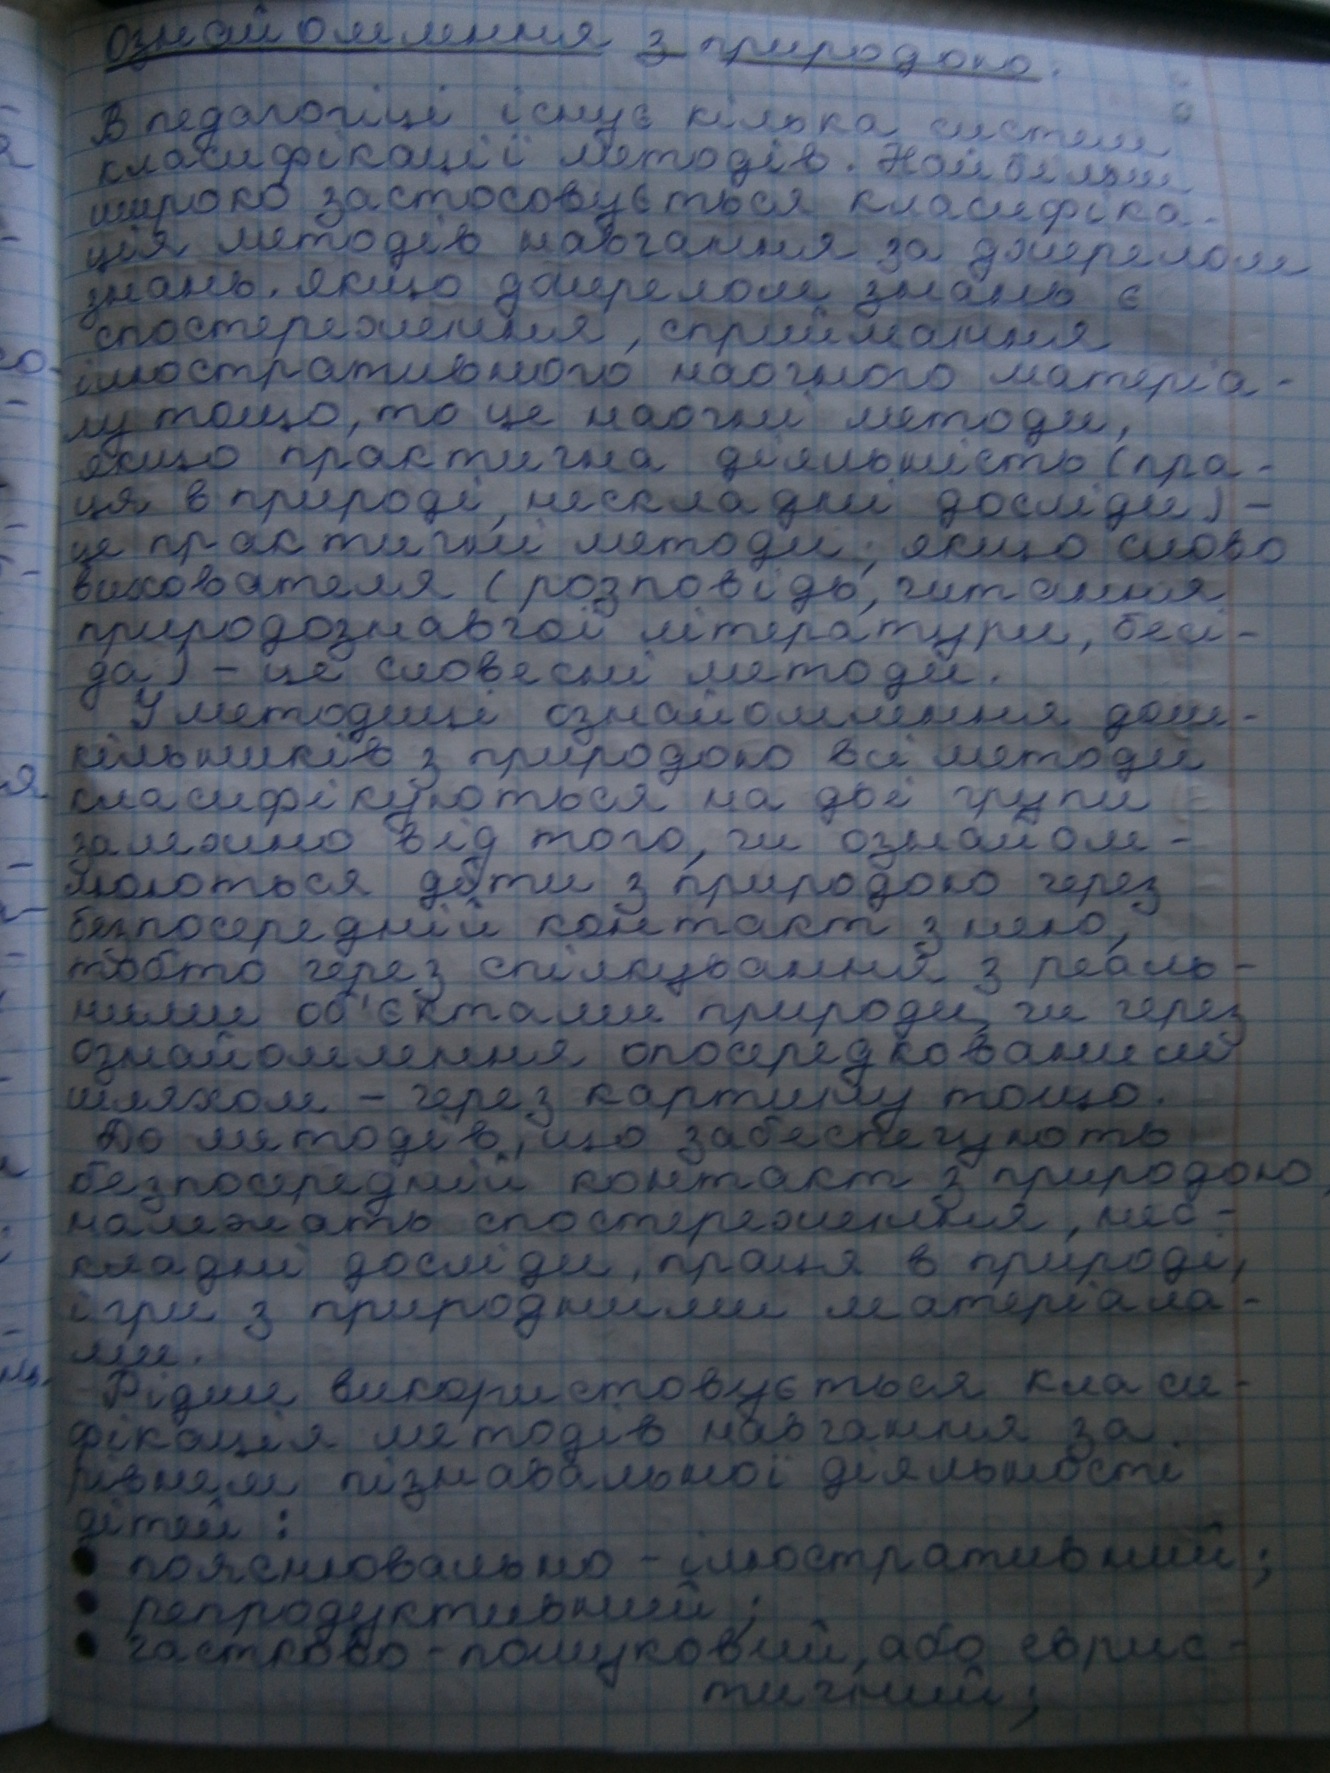 ознайомлення з природою.
В педагогіці існує кілька систем
класифікації методів. Найбільш
широко застосовується класифіка-
ція методів навчання за джерелом
знань. якщо джерелом знань є
спостереження, сприймання
ілюстративного наочного матеріа-
лу тощо, то це наочні методи,
якщо практична діяльність (пра-
ця в природі, нескладні досліди) -
це практичні методи; якщо слово
вихователя (розповідь, читання
природознавчої літератури, бесі-
да) - це словесні методи.
У методиці ознайомлення дош-
кільників з природою всі методи
класифікуються на дві групи
залежно від того, чи ознайом-
люються діти з природою через
безпосередній контакт з нею,
тобто через спілкування з реаль-
ними об'єктами природи, чи через
ознайомлення опосередкованим
шляхом - через картину тощо.
До методів, що забеспечують
безпосередній контакт з природою,
належать спостереження, нес-
кладні досліди, праця в природі,
ігри з природними матеріала-
ми.
Рідше використовується класи-
фікація методів навчання за
рівнем пізнавальної діяльності
дітей:
• пояснювально - ілюстративний;
• репродуктивний;
• частково - пошуковий, або еврис-
тичний;